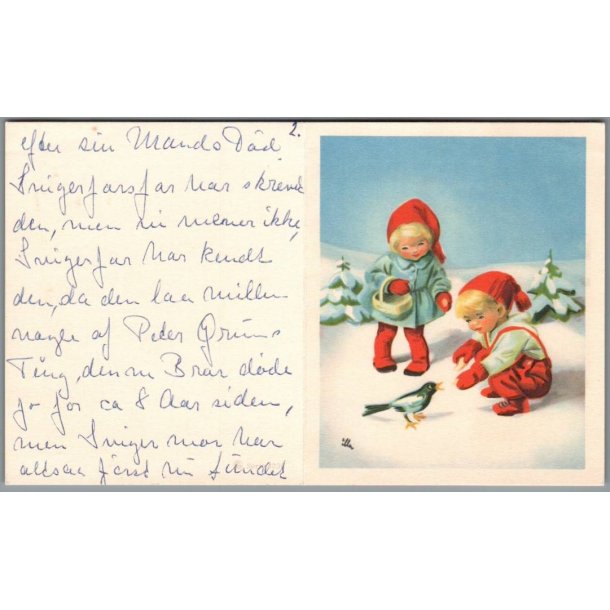 2.
efter sin Mands Død
Svigerfarsfar har skreved
den, men vi mener ikke,
Svigerfar har kendt
den, da den laa mellem
nogle af Peder Grøns
Ting, den n Bror døde
jo for ca 8 Aar siden,
men Svigermor har
altsaa først nu fundet